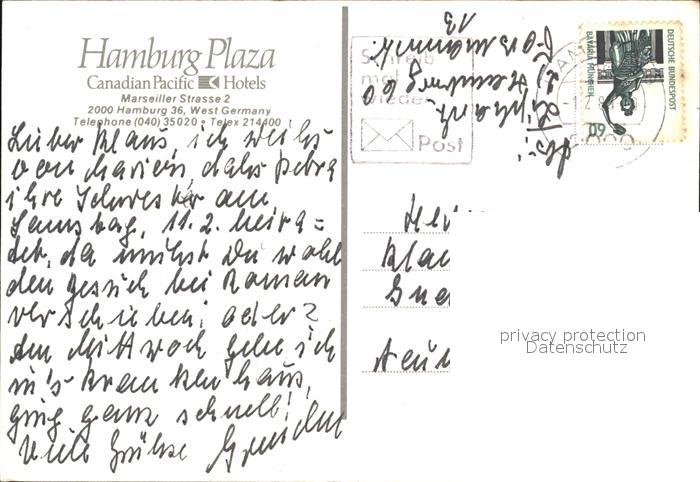 Hamburg Plaza
Canadian Pacific Hotels
Marseiller Strasse 2
2000 Hamburg 36, West Germany
Telephone (040) 35020 · Telex 214400
Lieber Klaus, ich weiß
von Marion, daß Petra
ihre Schwester am
Samstag, 11.2. heira=
tet, da mußt Du wohl
den Besuch bei Roman
verschieben, oder?
Am Mittwoch gehe ich
in's Krankenhaus,
ging ganz schnell!
Viele Grüße
Schreib
mal
wieder
Post
Hamburg 60
13
DEUTSCHE BUNDESPOST
BAVARIA MÜNCHEN
60
Klau
privacy protection
Datenschutz